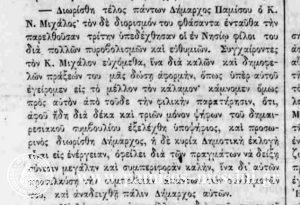 — Διωρίσθη τέλος πάντων Δήμαρχος Παμίσου ὁ Κ.
Ν. Μιχάλος· τὸν δὲ διορισμόν του φθάσαντα ἐνταῦθα τὴν
παρελθοῦσαν τρίτην ὑπεδέχθησαν οἱ ἐν Νησίῳ φίλοι του
διὰ πολλῶν πυροβολισμῶν καὶ εὐθυμιῶν. Συγχαίροντες
τὸν Κ. Μιχάλον εὐχόμεθα, ἵνα διὰ καλῶν καὶ δημοφε-
λῶν πράξεών του μᾶς δώσῃ ἀφορμὴν, ὅπως ὑπὲρ αὐτοῦ
ἐγείρομεν εἰς τὸ μέλλον τὸν κάλαμον· κάμνομεν ὅμως
πρὸς αὐτὸν ἀπὸ τοῦδε τὴν φιλικὴν παρατήρησιν, ὅτι,
ἀφοῦ ἤδη διὰ δέκα καὶ τριῶν μόνον ψήφων τοῦ δημαι-
ρεσιακοῦ συμβουλίου ἐξελέχθη ὑποψήφιος, καὶ προσω-
ρινὸς διωρίσθη Δήμαρχος, ἡ δὲ κυρία Δημοτικὴ ἐκλογὴ
εἶναι εἰς ἐνέργειαν, ὀφείλει διὰ τῶν πραγμάτων νὰ δείξῃ
μεγάλην καὶ συμπεριφορὰν καλὴν, ἵνα δι' αὐτῶν
προσελκύσῃ τὴν
του, καὶ ἀναδειχθῇ πάλιν Δήμαρχος αὐτῶν.